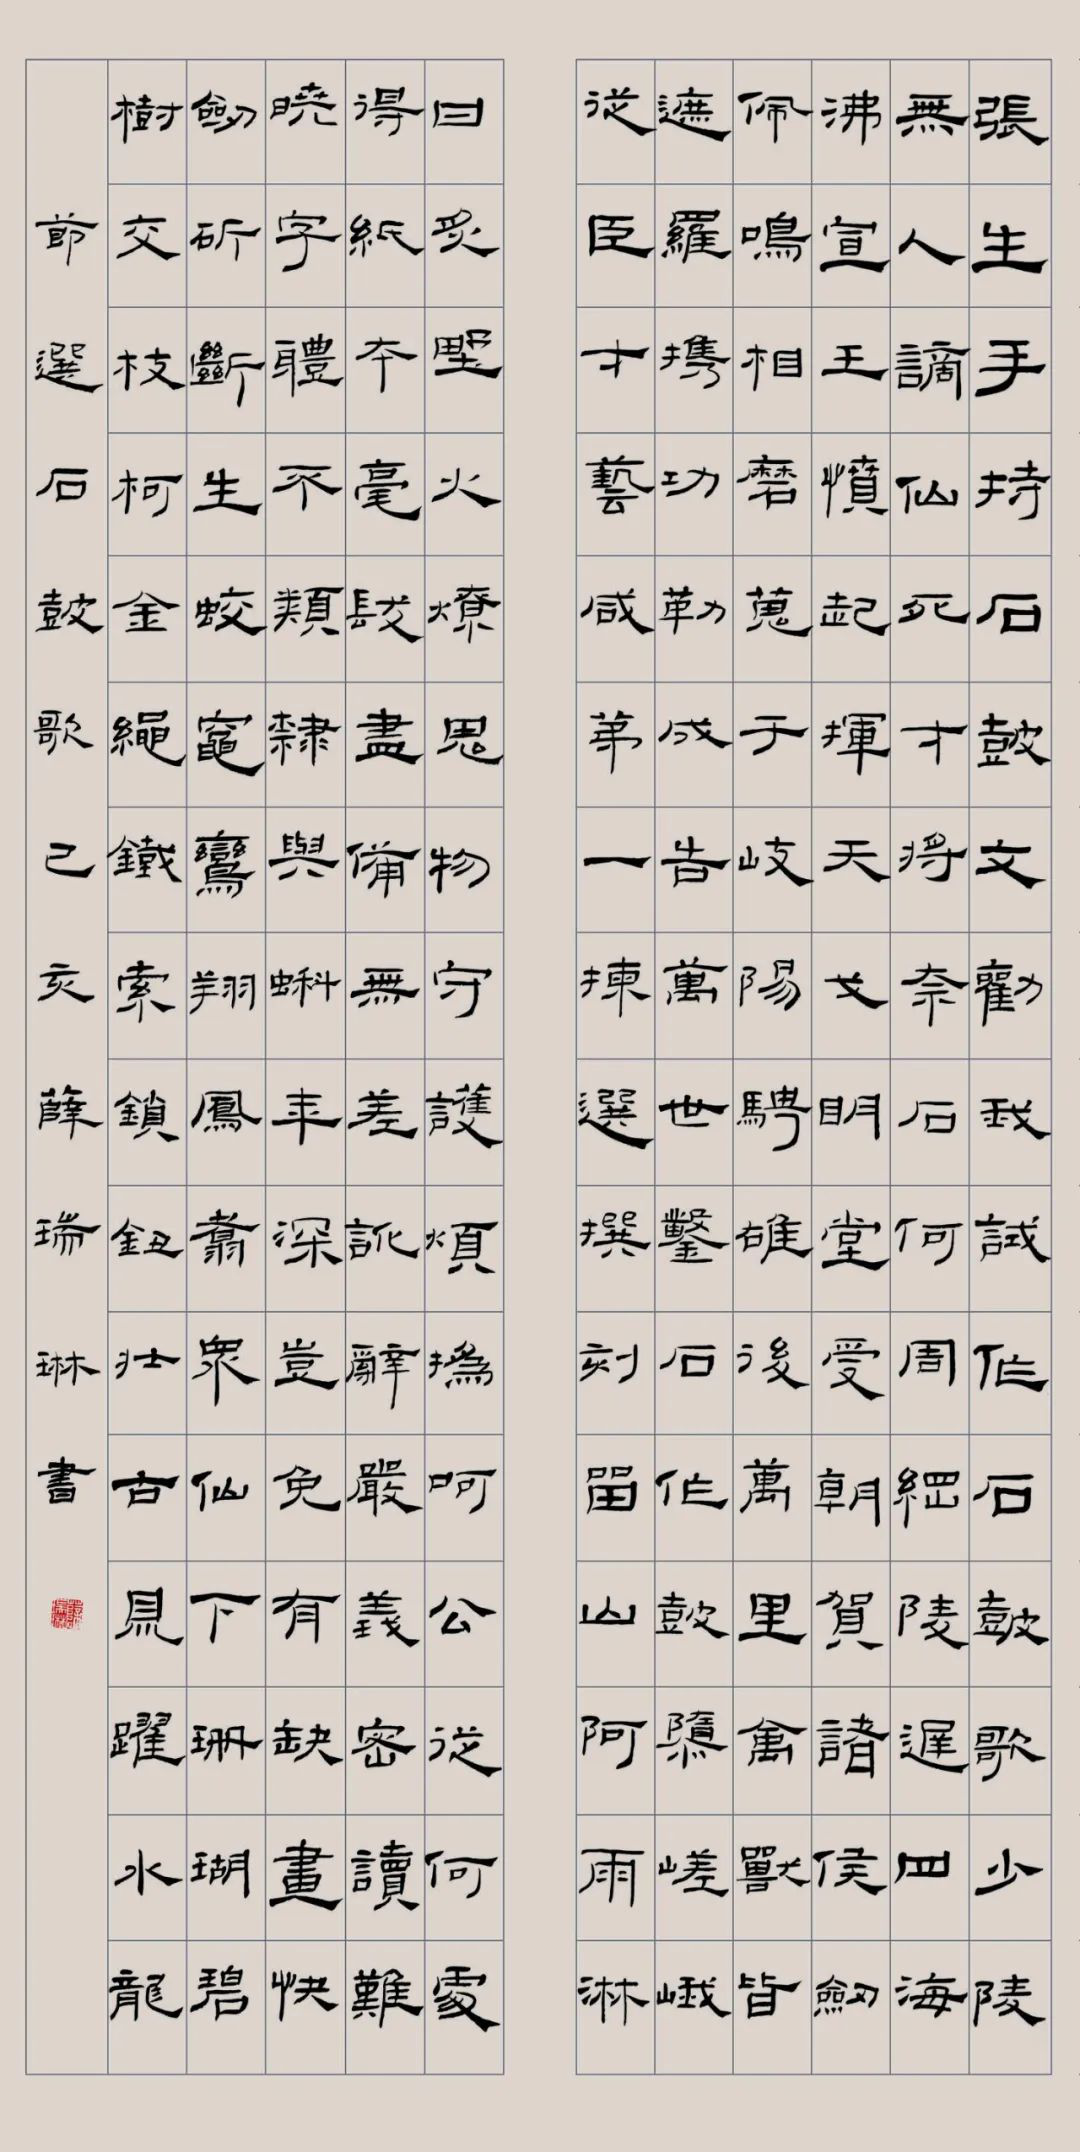 張生手持石鼓文勸我試作石鼓歌少陵
無人謫仙死才將奈石何周綱陵遲四海
沸宣王憤起揮天戈明堂受朝賀諸侯劍
佩鳴相磨蒐于岐陽騁雄後萬里禽獸皆
遮羅攜功勒成告萬世鑿石作鼓隳嵯峨
從臣才藝咸第一揀選撰刻留山阿雨淋
日炙野火燎思物守護煩撝呵公從何處
得紙本毫髮盡備無差訛辭嚴義密讀難
曉字體不類隸與蝌年深豈免有缺畫快
劍斫斷生蛟鼉鸞翔鳳翥衆仙下珊瑚碧
樹交枝柯金繩鐵索鎖鈕壯古鼎躍水龍
節選石鼓歌己亥薛瑞琳書